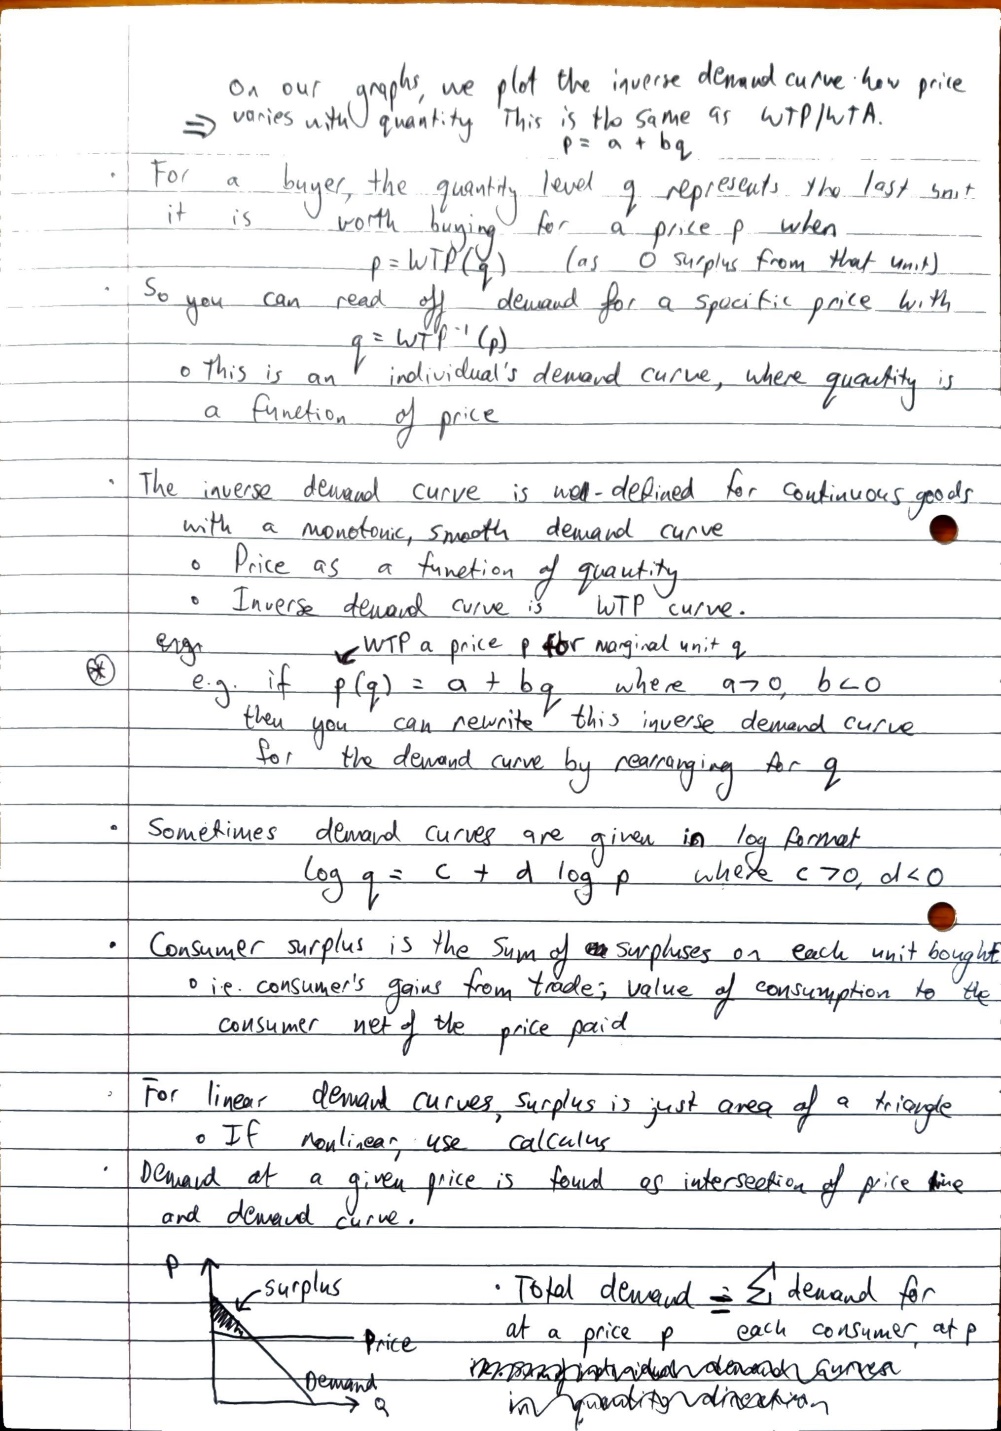 On our graphs, we plot the inverse demand curve: how price
⇒ varies with quantity This is the same as WTP/WTA.
p = a + bq
· For a buyer, the quantity level q represents the last unit
it is worth buying for a price p when
p = WTP(q) (as 0 surplus from that unit)
· So you can read off demand for a specific price with
q = WTP⁻¹(p)
o This is an individual's demand curve, where quantity is
a function of price
· The inverse demand curve is well-defined for continuous goods
with a monotonic, smooth demand curve
o Price as a function of quantity
o Inverse demand curve is WTP curve.
↙ WTP a price p for marginal unit q
⊛ e.g. if p(q) = a + bq where a>0, b<0
then you can rewrite this inverse demand curve
for the demand curve by rearranging for q
· Sometimes demand curves are given in log format
log q = c + d log p where c>0, d<0
· Consumer surplus is the sum of surpluses on each unit bought
o i.e. consumer's gains from trade; value of consumption to the
consumer net of the price paid
· For linear demand curves, surplus is just area of a triangle
o If nonlinear, use calculus
· Demand at a given price is found as intersection of price line
and demand curve.
P
surplus
Price
Demand
Q
· Total demand = Σ demand for
at a price p each consumer, at p
individual demand curves
in quantity direction